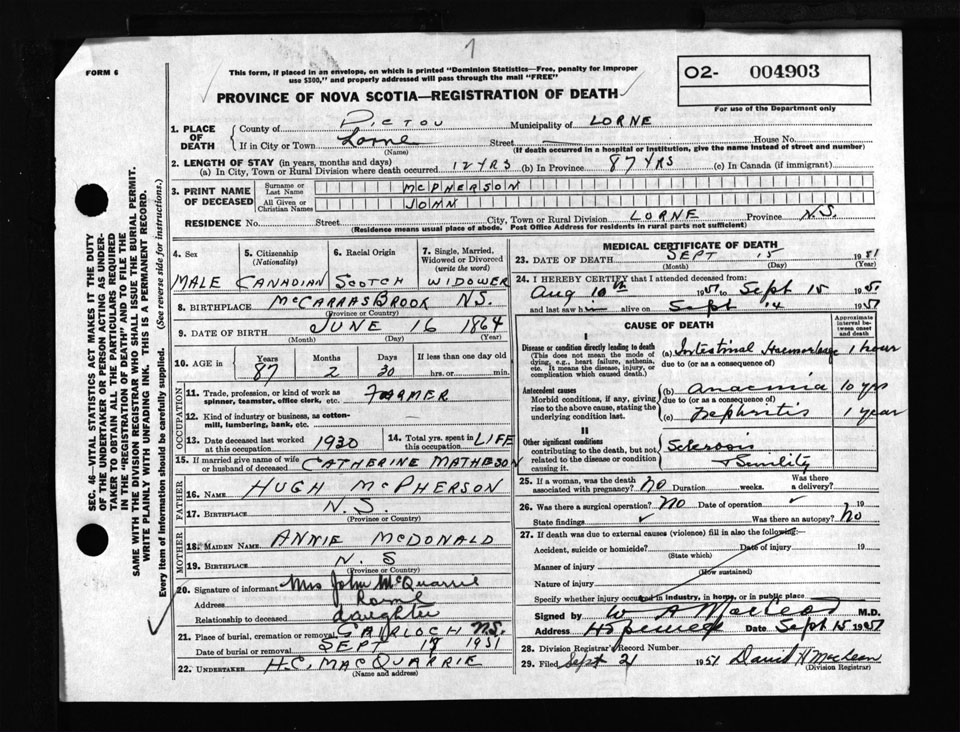 7
FORM 6
This form, if placed in an envelope, on which is printed "Dominion Statistics—Free, penalty for improper
use $300," and properly addressed will pass through the mail "FREE"
O2- 004903
For use of the Department only
PROVINCE OF NOVA SCOTIA—REGISTRATION OF DEATH
SEC. 46—VITAL STATISTICS ACT MAKES IT THE DUTY
OF THE UNDERTAKER OR PERSON ACTING AS UNDER-
TAKER TO OBTAIN ALL THE PARTICULARS REQUIRED
IN THE "REGISTRATION OF DEATH" AND TO FILE THE
SAME WITH THE DIVISION REGISTRAR WHO SHALL ISSUE THE BURIAL PERMIT.
WRITE PLAINLY WITH UNFADING INK. THIS IS A PERMANENT RECORD.
Every item of information should be carefully supplied. (See reverse side for instructions.)
1. PLACE OF DEATH
County of PICTOU Municipality of LORNE
If in City or Town Lorne Street House No.
(Name) (If death occurred in a hospital or institution, give the name instead of street and number)
2. LENGTH OF STAY (in years, months and days)
(a) In City, Town or Rural Division where death occurred 12 YRS (b) In Province 87 YRS (c) In Canada (if immigrant)
3. PRINT NAME OF DECEASED
Surname or Last Name MCPHERSON
All Given or Christian Names JOHN
RESIDENCE No. Street City, Town or Rural Division LORNE Province N.S.
(Residence means usual place of abode. Post Office Address for residents in rural parts not sufficient)
4. Sex 5. Citizenship (Nationality) 6. Racial Origin 7. Single, Married, Widowed or Divorced (write the word)
MALE CANADIAN SCOTCH WIDOWER
8. BIRTHPLACE MCCARRAS BROOK N.S.
(Province or Country)
9. DATE OF BIRTH JUNE 16 1864
(Month) (Day) (Year)
10. AGE in Years Months Days If less than one day old
87 2 30 hrs. or min.
OCCUPATION
11. Trade, profession, or kind of work as spinner, teamster, office clerk, etc. FARMER
12. Kind of industry or business, as cotton-mill, lumbering, bank, etc.
13. Date deceased last worked at this occupation 1930 14. Total yrs. spent in this occupation LIFE
15. If married give name of wife or husband of deceased CATHERINE MATHESON
FATHER
16. NAME HUGH MCPHERSON
17. BIRTHPLACE N.S.
(Province or Country)
MOTHER
18. MAIDEN NAME ANNIE MCDONALD
19. BIRTHPLACE N S
(Province or Country)
20. Signature of informant Mrs John McQuarrie
Address Lorne
Relationship to deceased daughter
21. Place of burial, cremation or removal GAIRLOCH N.S.
Date of burial or removal SEPT 17 1951
22. UNDERTAKER H.C. MACQUARRIE
(Name and address)
MEDICAL CERTIFICATE OF DEATH
23. DATE OF DEATH SEPT 15 1951
(Month) (Day) (Year)
24. I HEREBY CERTIFY that I attended deceased from:
Aug 10th 1951 to Sept 15 1951
and last saw him alive on Sept 14 1951
CAUSE OF DEATH
Approximate interval between onset and death
I
Disease or condition directly leading to death
(This does not mean the mode of dying, e.g., heart failure, asthenia, etc. It means the disease, injury, or complication which caused death.)
(a) Intestinal Haemorrhage 1 hour
due to (or as a consequence of)
Antecedent causes
Morbid conditions, if any, giving rise to the above cause, stating the underlying condition last.
(b) Anaemia 10 yrs
due to (or as a consequence of)
(c) Nephritis 1 year
II
Other significant conditions contributing to the death, but not related to the disease or condition causing it.
Sclerosis
+ Senility
25. If a woman, was the death associated with pregnancy? no Duration weeks. Was there a delivery?
26. Was there a surgical operation? No Date of operation 19
State findings Was there an autopsy? No
27. If death was due to external causes (violence) fill in also the following:—
Accident, suicide or homicide? Date of injury 19
(State which)
Manner of injury
(How sustained)
Nature of injury
Specify whether injury occurred in industry, in home, or in public place
Signed by W A MacLeod M.D.
Address Hopewell Date Sept 15 1951
28. Division Registrar's Record Number
29. Filed Sept 21 1951 David H Maclean
(Division Registrar)